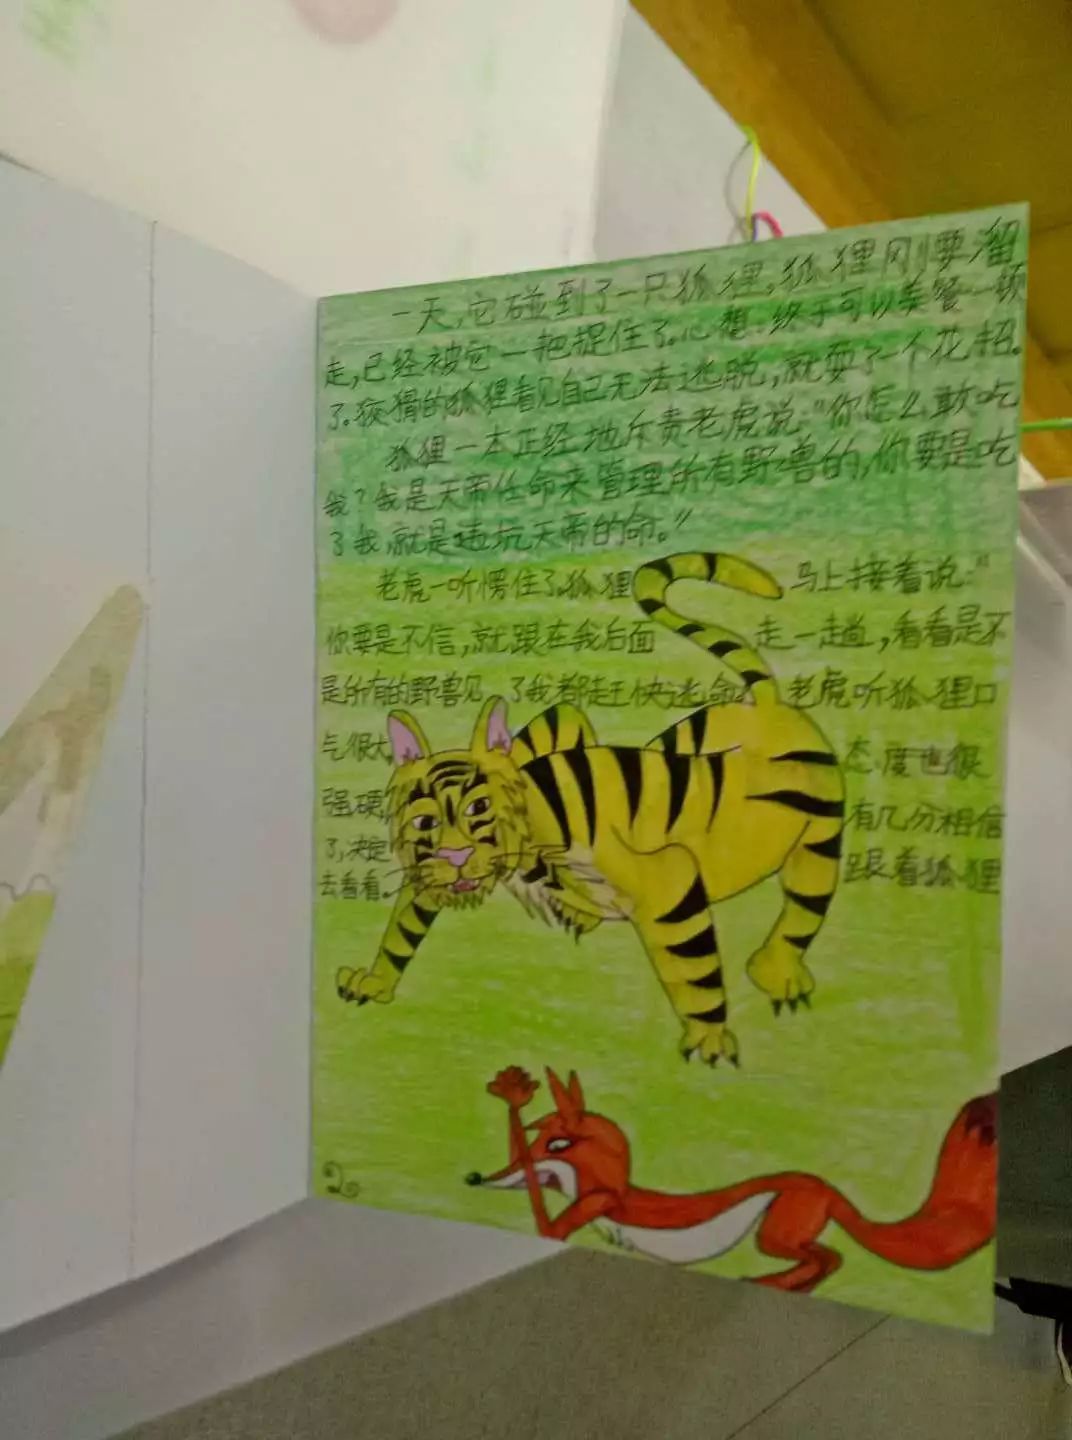 一天,它碰到了一只狐狸,狐狸刚要溜
走,已经被它一把捉住了.心想:终于可以美餐一顿
了.狡猾的狐狸看见自己无法逃脱,就耍了一个花招.
狐狸一本正经地斥责老虎说:"你怎么敢吃
我?我是天帝任命来管理所有野兽的,你要是吃
了我,就是违坑天帝的命。"
老虎一听愣住了.狐狸 马上接着说:"
你要是不信,就跟在我后面 走一趟,看看是不
是所有的野兽见 了我都赶快逃命. 老虎听狐狸口
气很大, 态度也很
强硬, 有几分相信
了,决定 跟着狐狸
去看看.
2.